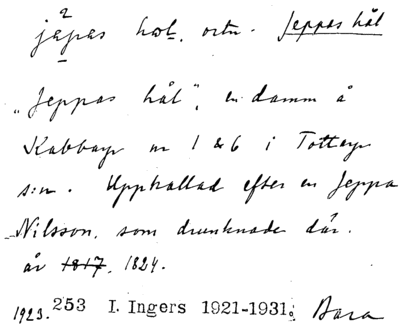 2
jepas hol. ortn. Jeppas hål
"Jeppas hål", en damm å
Kabbarp nr 1 & 6 i Tottarp
s:n. Uppkallad efter en Jeppa
Nilsson, som drunknade där.
år 1817, 1824.
1923. 253 I. Ingers 1921-1931. Bara